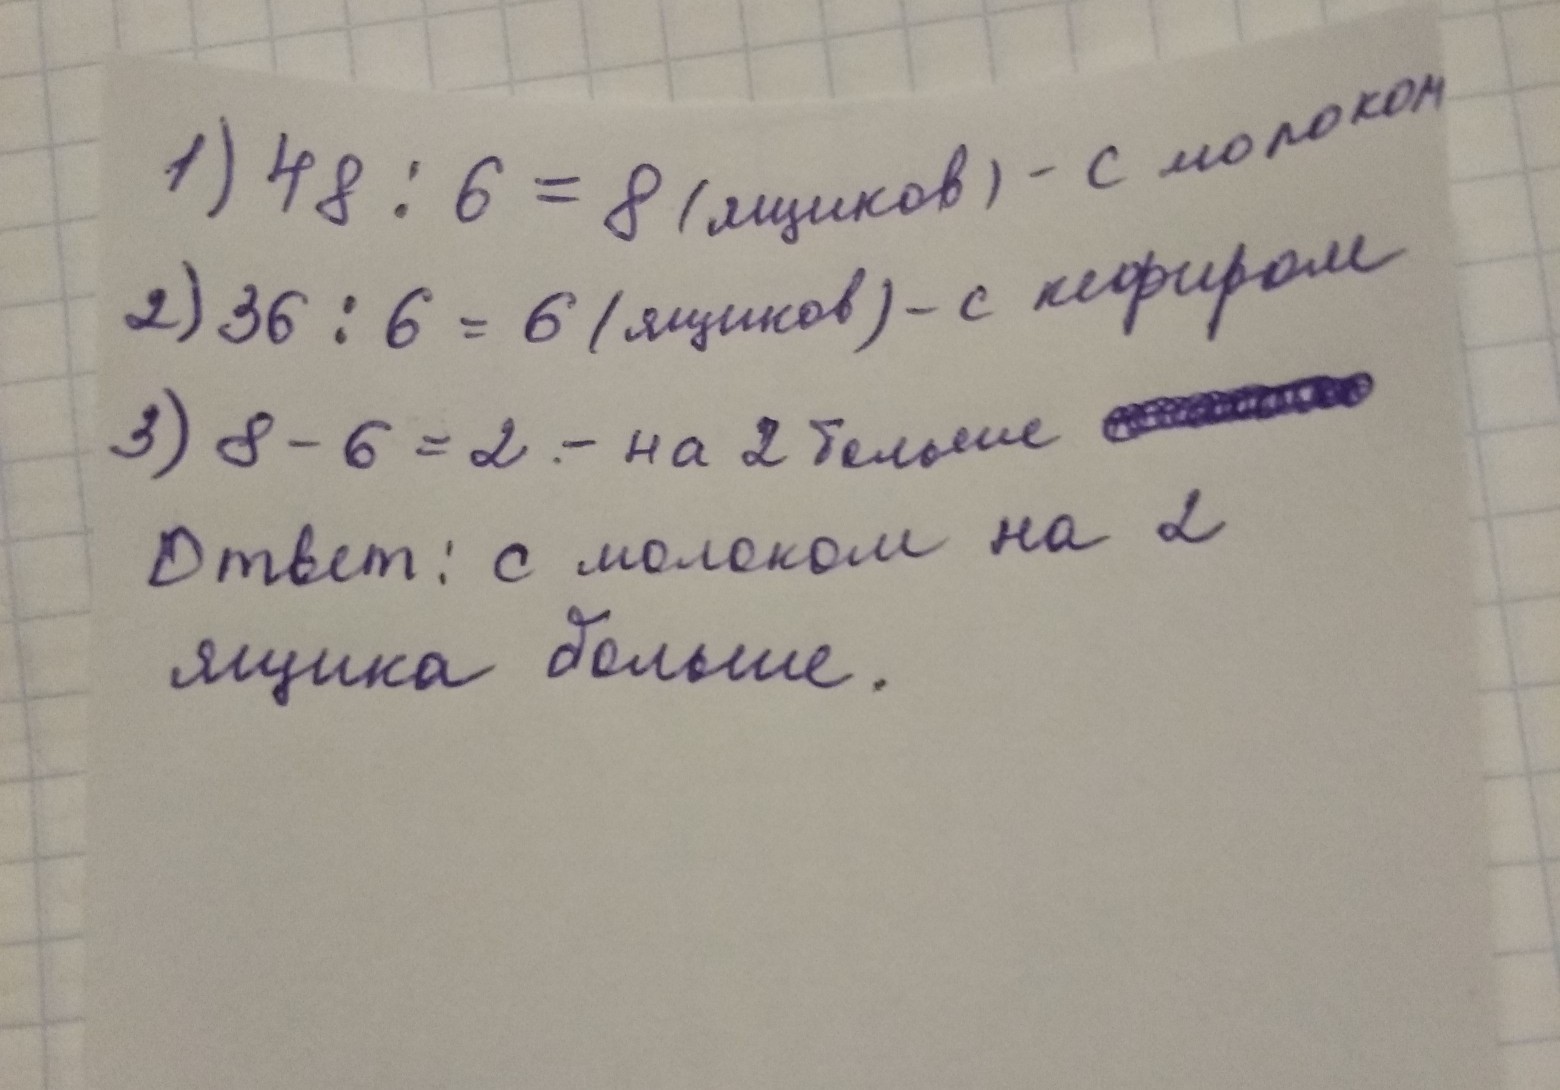 1) 48 : 6 = 8 (ящиков) - с молоком
2) 36 : 6 = 6 (ящиков) - с кефиром
3) 8 - 6 = 2 .- на 2 больше
Ответ: с молоком на 2
ящика больше.